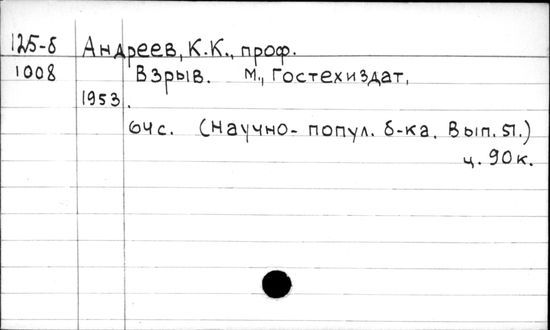 125-б Андреев, К.К., проф.
1008 Взрыв. М., Гостехиздат,
1953.
64 с. (Научно- попул. б-ка. Вып. 51.)
ц. 90 к.